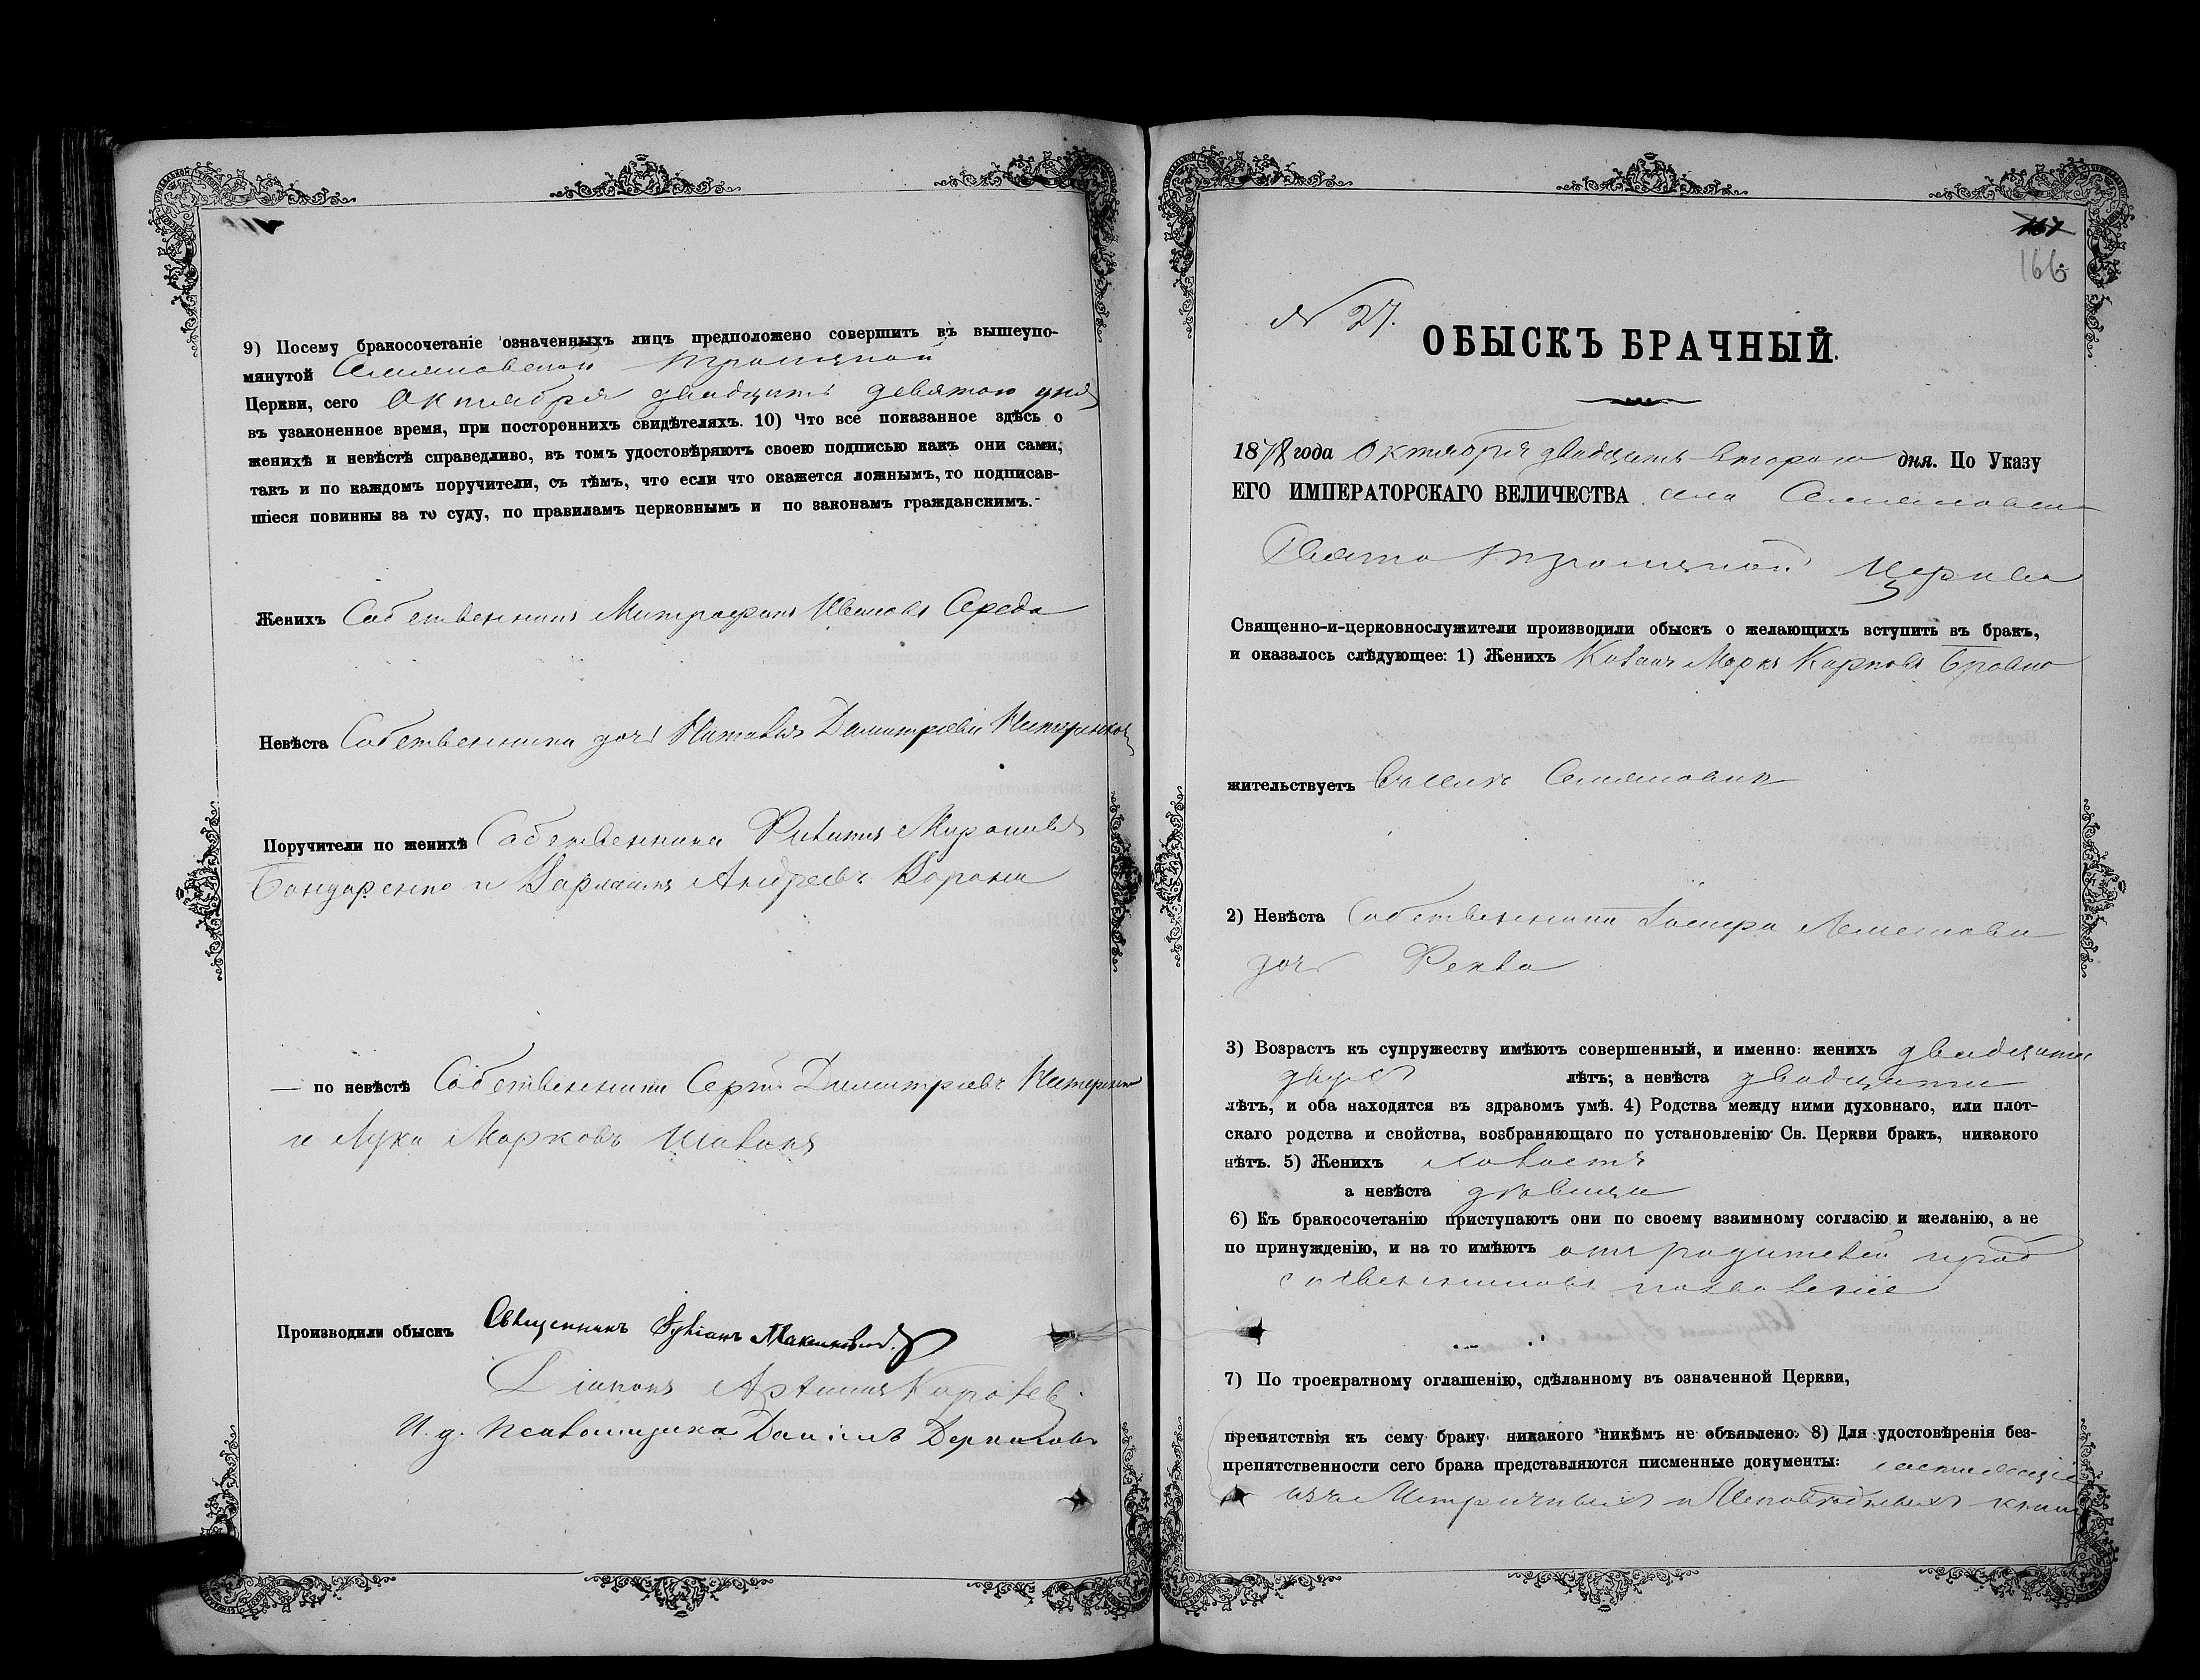 9) Посему бракосочетаніе означенныхъ лицъ предположено совершить въ вышеупо-
мянутой Семяновской Троицкой
Церкви, сего Октября двадцать девятого дня
въ узаконенное время, при постороннихъ свидѣтеляхъ. 10) Что все показанное здѣсь о
женихѣ и невѣстѣ справедливо, въ томъ удостовѣряютъ своею подписью какъ они сами,
такъ и по каждомъ поручители, съ тѣмъ, что если что окажется ложнымъ, то подписав-
шіеся повинны за то суду, по правиламъ церковнымъ и по законамъ гражданскимъ.
Женихъ Собственникъ Митрофанъ Ивановъ Середа
Невѣста Собственника дочь Наталія Димитріева
Поручители по женихѣ Собственники Филипъ Мироновъ
Бондаренко и Варлаамъ Андреевъ Ворона
— по невѣстѣ Собственники Сергій Димитріевъ
и Лука Марковъ
Производили обыскъ Священникъ Іуліанъ
Діаконъ
И. д. Псаломщика Даніилъ
167
166
№ 27.
ОБЫСКЪ БРАЧНЫЙ.
1878 года Октября двадцать второго дня. По Указу
ЕГО ИМПЕРАТОРСКАГО ВЕЛИЧЕСТВА села
Свято Троицкой Церкви
Священно-и-церковнослужители производили обыскъ о желающихъ вступить въ бракъ,
и оказалось слѣдующее: 1) Женихъ Козакъ Маркъ Карповъ Бровко
жительствуетъ въ селѣ Семяновкѣ
2) Невѣста Собственника
дочь Фекла
3) Возрастъ къ супружеству имѣютъ совершенный, и именно: женихъ двадцати
двухъ лѣтъ; а невѣста двадцати
лѣтъ, и оба находятся въ здравомъ умѣ. 4) Родства между ними духовнаго, или плот-
скаго родства и свойства, возбраняющаго по установленію Св. Церкви бракъ, никакого
нѣтъ. 5) Женихъ холостъ
а невѣста дѣвица
6) Къ бракосочетанію приступаютъ они по своему взаимному согласію и желанію, а не
по принужденію, и на то имѣютъ отъ родителей и род
ственниковъ позволеніе
7) По троекратному оглашенію, сдѣланному въ означенной Церкви,
препятствія къ сему браку никакого никѣмъ не объявлено. 8) Для удостовѣренія без-
препятственности сего брака представляются писменные документы:
изъ Метричныхъ и Исповѣдныхъ книгъ